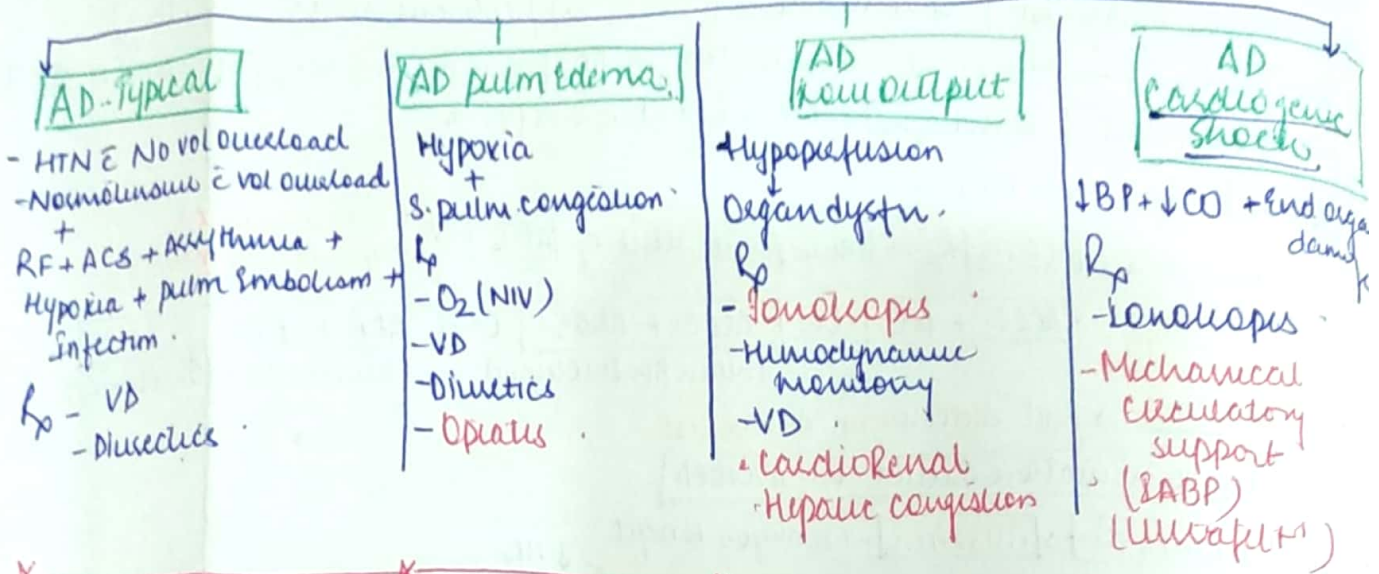 AD-Typical
- HTN c̄ No vol overload
- Normotensive c̄ vol overload
+
RF + ACS + Arrythmia +
Hypoxia + pulm Embolism +
Infection.
Rx - VD
- Diuretics.
AD pulm Edema.
Hypoxia
+
S. pulm. congestion
Rx
- O2 (NIV)
- VD
- Diuretics
- Opiates.
AD
Low output
Hypoperfusion
Organ dysfn.
Rx
- Ionotropes
- Hemodynamic
monitoring
- VD.
• CardioRenal
• Hepatic congestion
AD
Cardiogenic
Shock
↓BP + ↓CO + End orga
dam
Rx
- Ionotropes
- Mechanical
circulatory
support
(IABP)